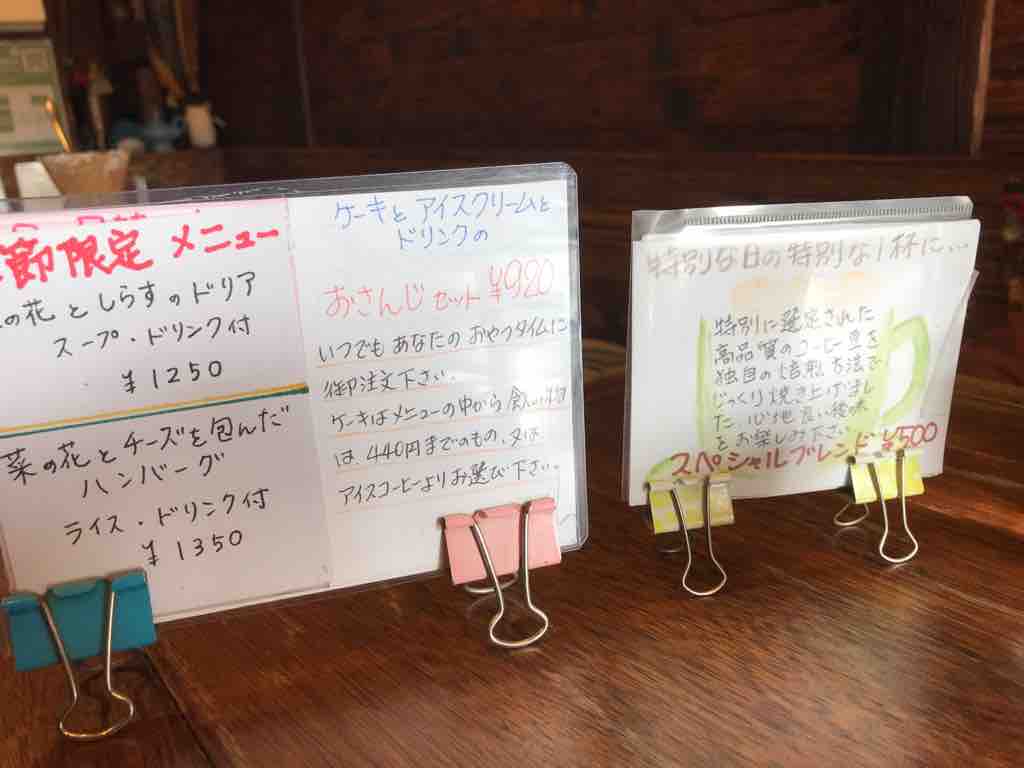 節限定 メニュー
の花としらすのドリア
スープ・ドリンク付
¥1250
菜の花とチーズを包んだ
ハンバーグ
ライス・ドリンク付
¥1350
ケーキとアイスクリームと
ドリンクの
おさんじセット ¥920
いつでもあなたのおやつタイムに
御注文下さい。
ケーキはメニューの中から
は、440円までのもの、又は
アイスコーヒーよりお選び下さい。
特別な日の特別な1杯に…
特別に選定された
高品質のコーヒー豆を
独自の焙煎方法で
じっくり焼き上げまし
た。心地良い後味
をお楽しみ下さい
スペシャルブレンド ¥500